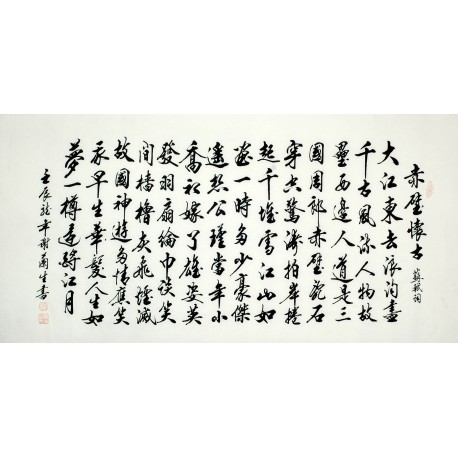 赤壁懷古 蘇軾詞
大江東去浪淘盡
千古風流人物故
壘西邊人道是三
國周郎赤壁亂石
穿空驚濤拍岸捲
起千堆雪江山如
畫一時多少豪傑
遙想公瑾當年小
喬初嫁了雄姿英
發羽扇綸巾談笑
間檣櫓灰飛煙滅
故國神遊多情應笑
我早生華髮人生如
夢一樽還酹江月
壬辰龍年謝蘭生書